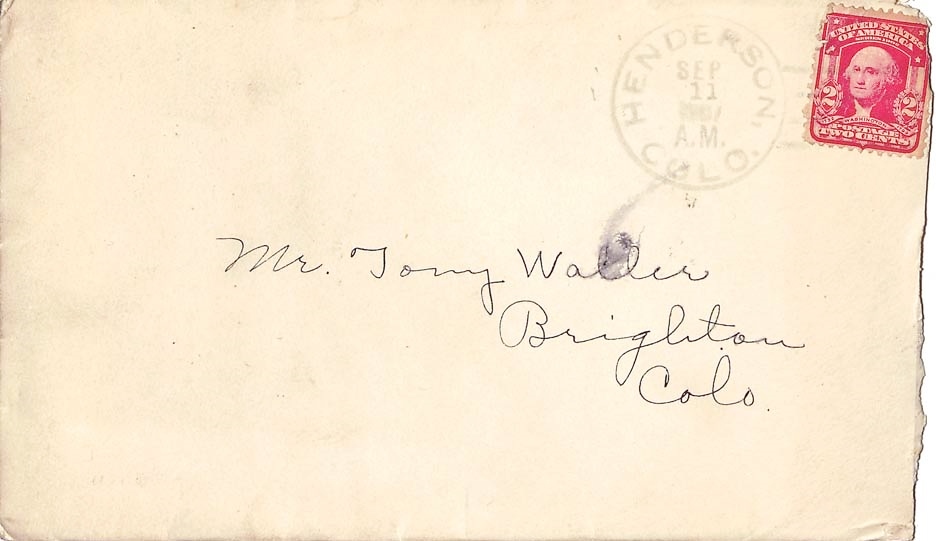 HENDERSON,
SEP
11
A.M.
COLO.
UNITED STATES
OF AMERICA
SERIES 1902
2 2
WASHINGTON
POSTAGE
TWO CENTS
Mr. Tony Waller
Brighton
Colo.